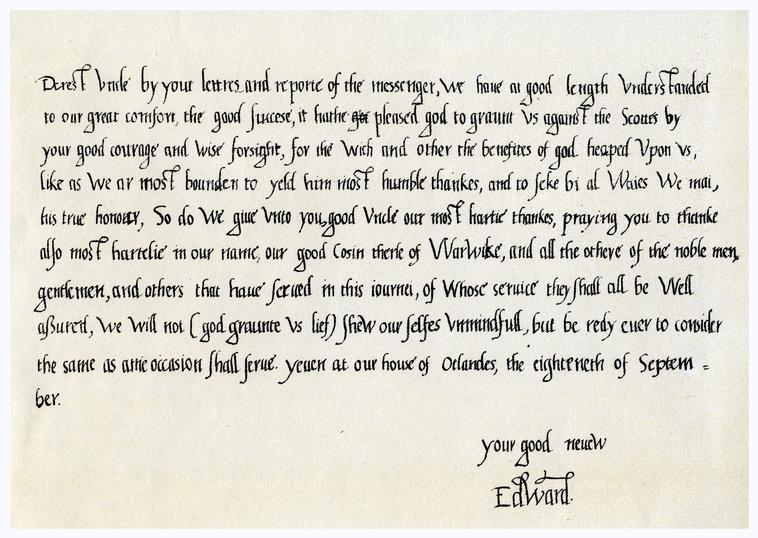 Derest Vncle by your lettres and reporte of the messenger, we haue at good length Vnderstanded
to our great comfort, the good succese, it hathe pleased god to graunt Vs against the Scottes by
your good courage and wise forsight, for the wich and other the benefites of god heaped Vpon vs,
like as We ar most bounden to yeld him most humble thankes, and to seke bi al Waies We mai,
his true honour, So do We giue Vnto you, good Vncle our most hartie thankes, praying you to thanke
also most hartelie in our name, our good Cosin therle of Warwike, and all the othere of the noble men,
gentlemen, and others that haue serued in this iournei, of Whose seruice they shall all be Well
assured, We will not (god graunte Vs lief) shew our selfes Vnmindfull, but be redy euer to consider
the same as anie occasion shall serue. yeuen at our house of Otlandes, the eighteneth of Septem =
ber.
your good neuew
Edward.